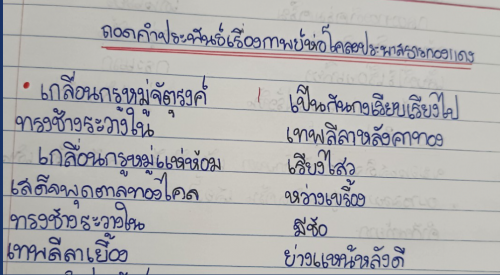 ถอดคำประพันธ์เรื่องกาพย์ห่อโคลงประพาสธารทองแดง
เกลื่อนกรูหมู่จัตุรงค์ เป็นกันกงเรียบเรียงไป
ทรงช้างระวางใน เทพลีลาหลังคาทอง
เกลื่อนกรูหมู่แห่ห้อม เรียงไสว
เสด็จพุดตาลทองไคล หว่างเขรื้อง
ทรงช้างระวางใน มีชื่อ
เทพลีลาเยื้อง ย่างแหน้หลังดี